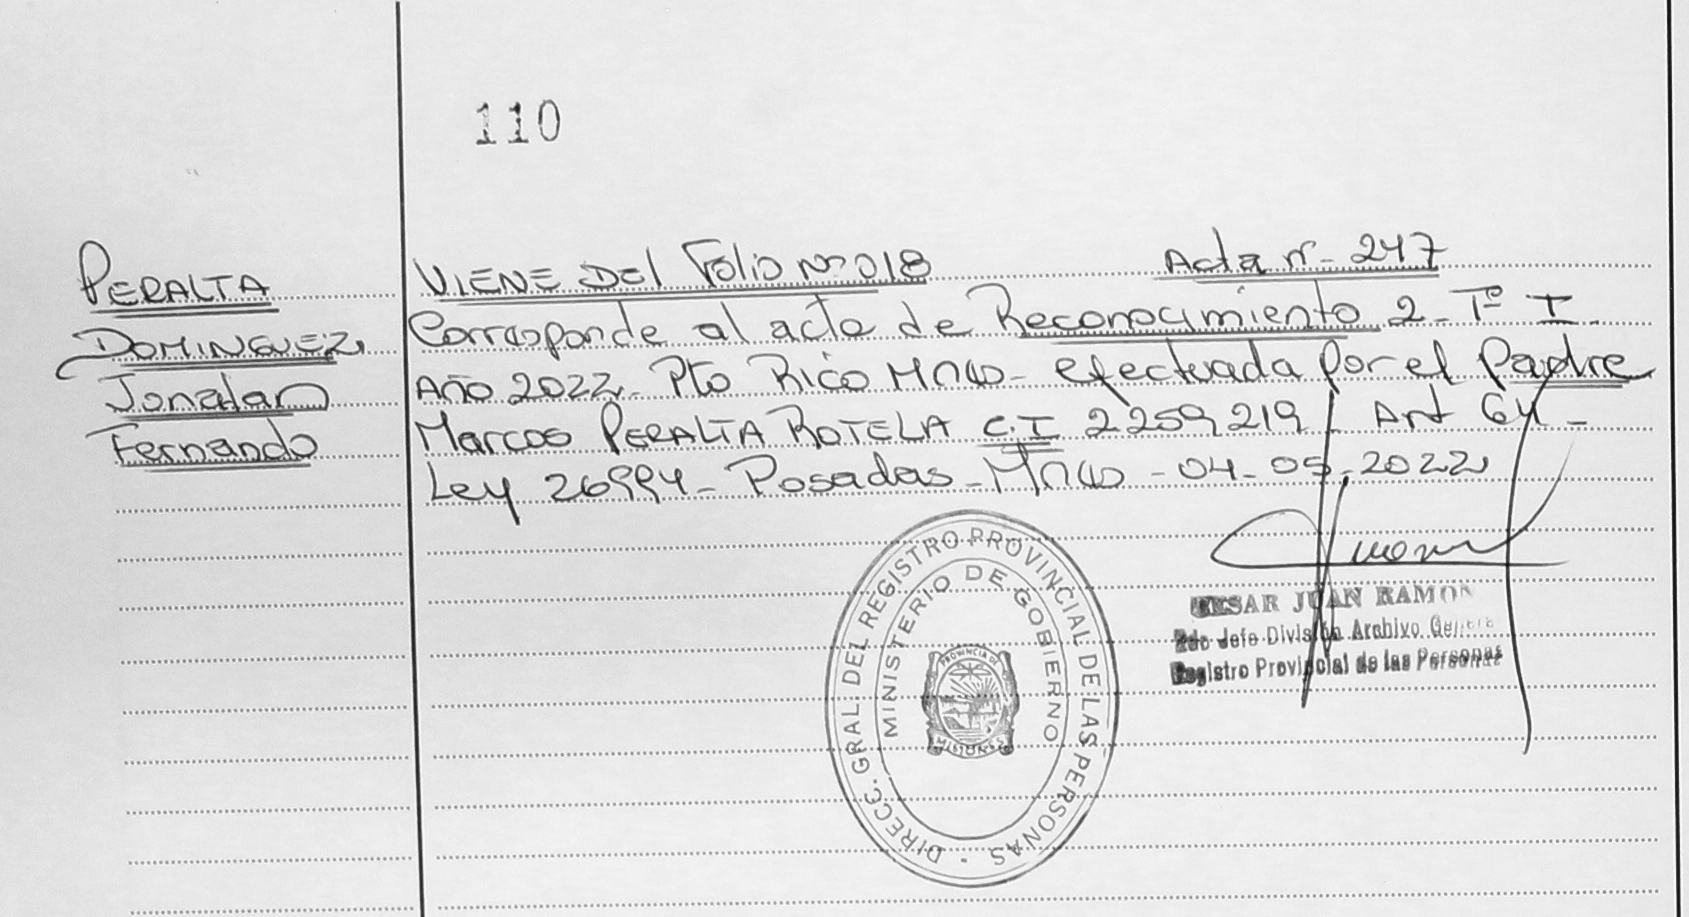 110
PERALTA
DOMINGUEZ
Jonatan
Fernando
VIENE DEl Folio Nº 018 Acta nº 247
Corresponde al acta de Reconocimiento 2 - Tº I -
Año 2022 - Pto Rico Mnes - efectuada por el Padre
Marcos PERALTA ROTELA C.I 2259219 - Art 64 -
Ley 26994 - Posadas - Mnes - 04-05-2022
DIRECC. GRAL. DEL REGISTRO PROVINCIAL DE LAS PERSONAS
MINISTERIO DE GOBIERNO
PROVINCIA DE
MISIONES
CESAR JUAN RAMON
2do Jefe División Archivo General
Registro Provincial de las Personas